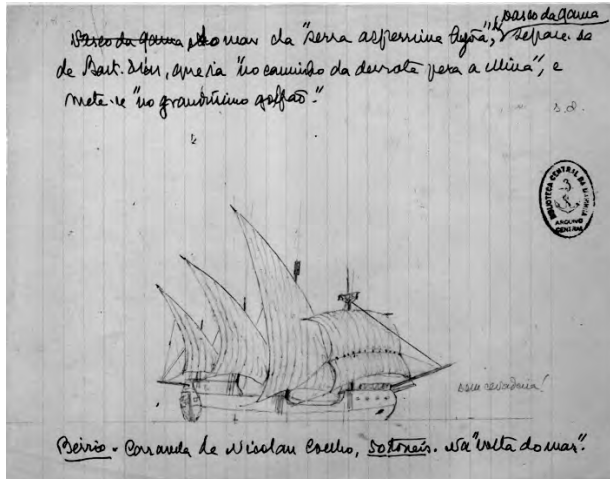 Vasco da Gama
Vasco da Gama no mar da "serra asperrima Lyoa", separa-se
de Bart. Dias, que ia "no caminho da derrota pera a Mina", e
mete-se "no grandissimo golfão."
s.d.
BIBLIOTECA CENTRAL DA MARINHA
ARQUIVO
CENTRAL
cevadeira!
Berrio - Caravela de Nicolau Coelho, 50 toneis. Na "volta do mar".